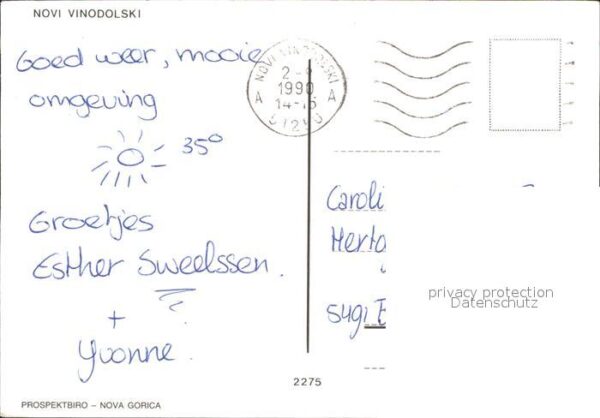 NOVI VINODOLSKI
Goed weer, mooie
omgeving
35°
Groetjes
Esther Sweelssen.
+
Yvonne.
NOVI VINODOLSKI
1990
14-15
A A
51250
Caroli
Herto
5491 E
privacy protection
Datenschutz
2275
PROSPEKTBIRO – NOVA GORICA